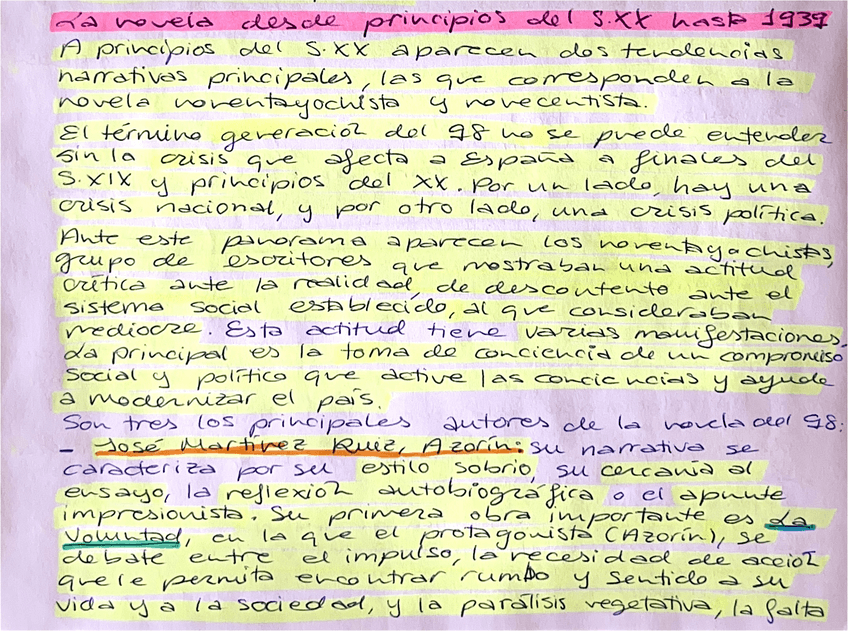 La novela desde principios del S.XX hasta 1939
A principios del S.XX aparecen dos tendencias
narrativas principales, las que corresponden a la
novela noventayochista y novecentista.
El término generación del 98 no se puede entender
sin la crisis que afecta a España a finales del
S.XIX y principios del XX. Por un lado, hay una
crisis nacional, y por otro lado, una crisis política.
Ante este panorama aparecen los noventayochistas,
grupo de escritores que mostraban una actitud
crítica ante la realidad, de descontento ante el
sistema social establecido, al que consideraban
mediocre. Esta actitud tiene varias manifestaciones,
La principal es la toma de conciencia de un compromiso
social y político que active las conciencias y ayude
a modernizar el país.
Son tres los principales autores de la novela del 98:
- José Martínez Ruiz, Azorín: su narrativa se
caracteriza por su estilo sobrio, su cercanía al
ensayo, la reflexión autobiográfica o el apunte
impresionista. Su primera obra importante es La
Voluntad, en la que el protagonista (Azorín), se
debate entre el impulso, la necesidad de acción
que le permita encontrar rumbo y sentido a su
vida y a la sociedad, y la parálisis vegetativa, la falta